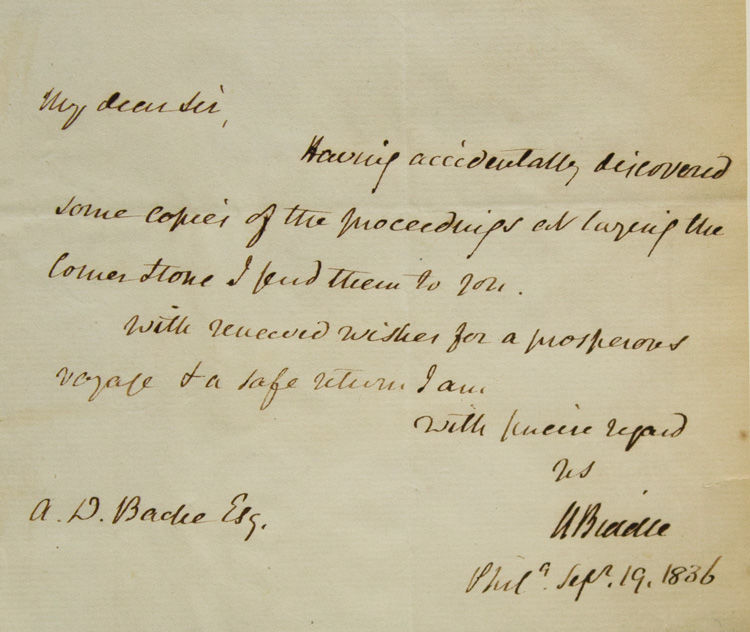 My dear Sir,
Having accidentally discovered
some copies of the proceedings on laying the
Corner Stone I send them to you.
With renewed wishes for a prosperous
voyage & a safe return I am
with sincere regard
Yrs
N Biddle
A. D. Bache Esq.
Phila. Sepr. 19. 1836